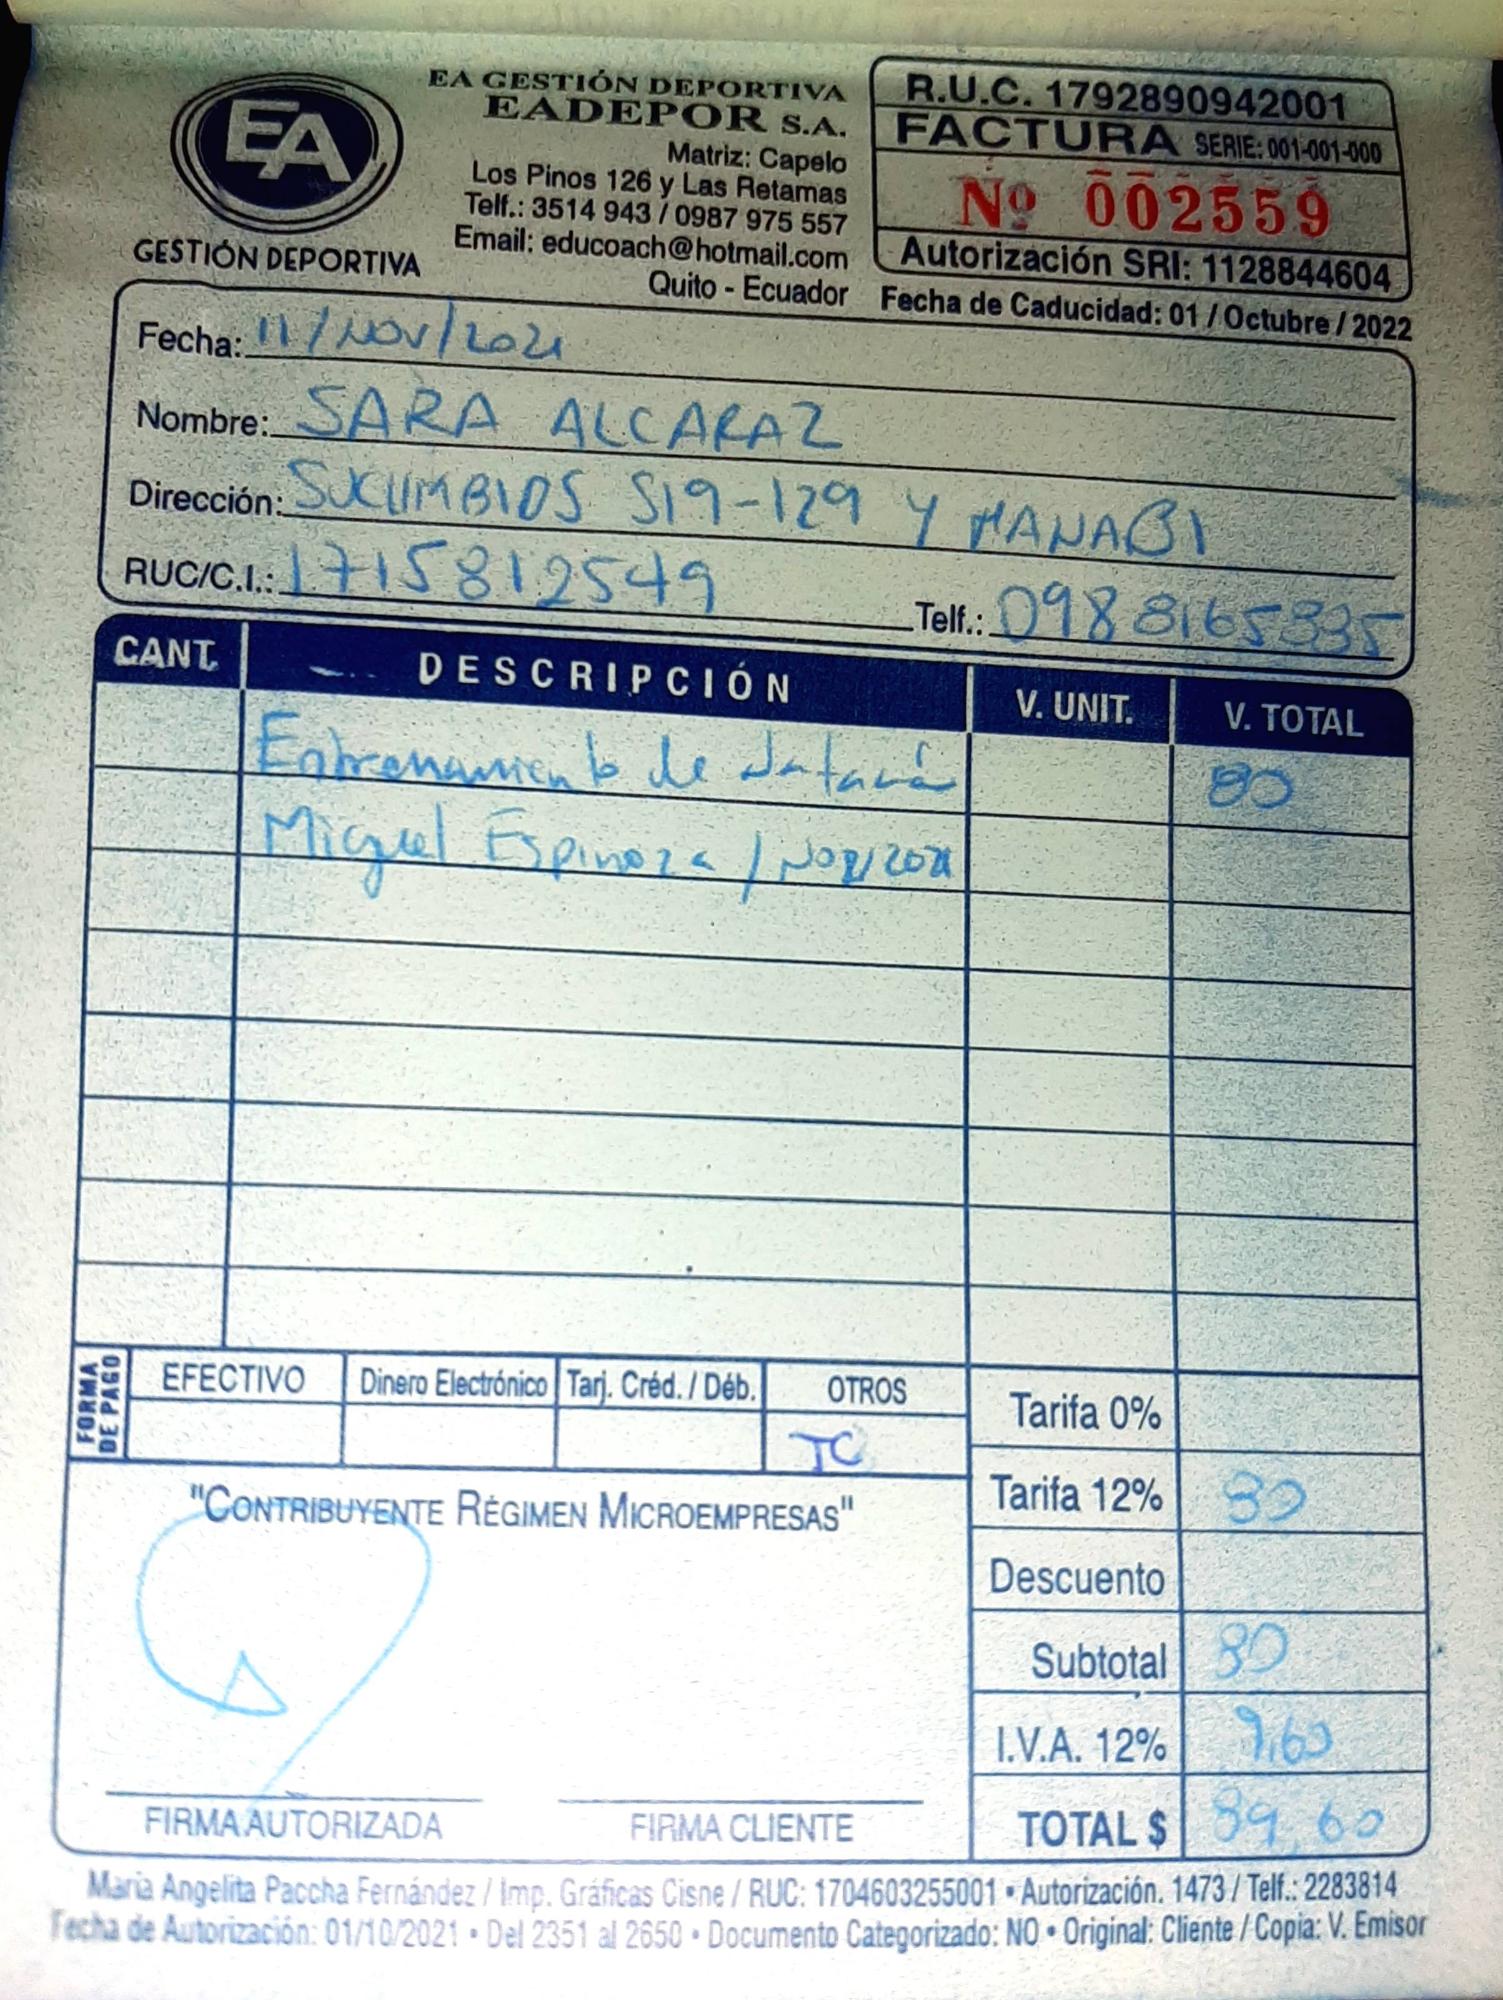 EA
GESTIÓN DEPORTIVA
EA GESTIÓN DEPORTIVA
EADEPOR S.A.
Matriz: Capelo
Los Pinos 126 y Las Retamas
Telf.: 3514 943 / 0987 975 557
Email: educoach@hotmail.com
Quito - Ecuador
R.U.C. 1792890942001
FACTURA SERIE: 001-001-000
Nº 002559
Autorización SRI: 1128844604
Fecha de Caducidad: 01 / Octubre / 2022
Fecha: 11/NOV/2021
Nombre: SARA ALCARAZ
Dirección: SUCUMBIOS S19-129 Y MANABI
RUC/C.I.: 1715812549 Telf.: 0988165335
CANT. DESCRIPCIÓN V. UNIT. V. TOTAL
Entrenamiento de natación 80
Miguel Espinoza / Nov/2021
FORMA DE PAGO
EFECTIVO Dinero Electrónico Tarj. Créd. / Déb. OTROS
TC
Tarifa 0%
Tarifa 12% 80
Descuento
Subtotal 80
I.V.A. 12% 9,60
TOTAL $ 89,60
"CONTRIBUYENTE RÉGIMEN MICROEMPRESAS"
FIRMA AUTORIZADA FIRMA CLIENTE
María Angelita Paccha Fernández / Imp. Gráficas Cisne / RUC: 1704603255001 • Autorización. 1473 / Telf.: 2283814
Fecha de Autorización: 01/10/2021 • Del 2351 al 2650 • Documento Categorizado: NO • Original: Cliente / Copia: V. Emisor